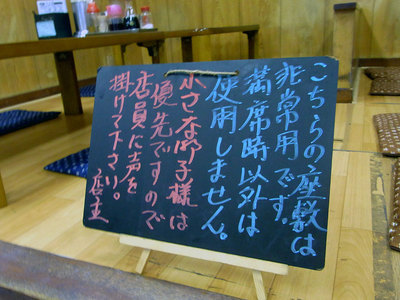 こちらの座敷は
非常用です。
満席時以外は
使用しません。
小さな御子様は
優先ですので
店員に声を
掛けて下さい。
店主